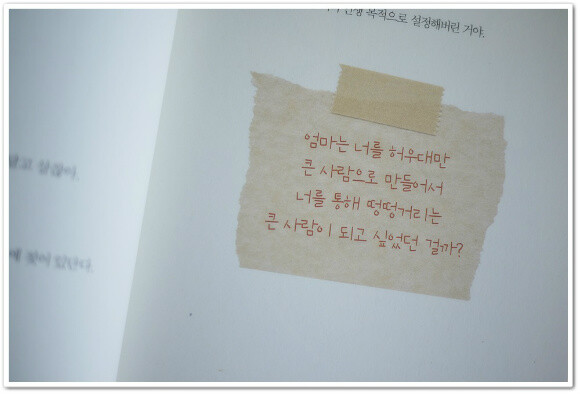 인생 목적으로 설정해버린 거야.
엄마는 너를 허우대만
큰 사람으로 만들어서
너를 통해 떵떵거리는
큰 사람이 되고 싶었던 걸까?
않고 살잖아.
에 젖어 있단다.